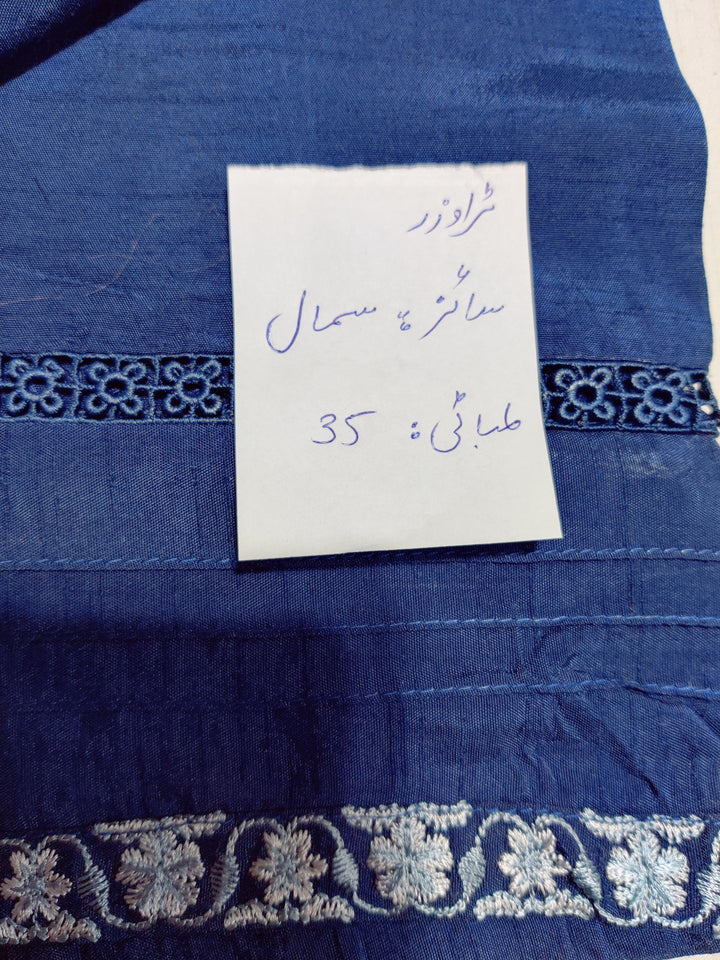 ٹراوزر
سائز: سمال
لمبائی: 35